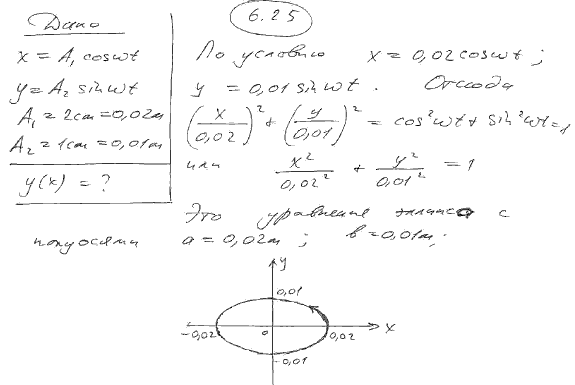 6.25
Дано
x = A₁ cosωt
y = A₂ sinωt
A₁ = 2см = 0,02м
A₂ = 1см = 0,01м
y(x) = ?
По условию x = 0,02cosωt ;
y = 0,01 sinωt . Отсюда
(x/0,02)² + (y/0,01)² = cos²ωt + sin²ωt = 1
или x²/0,02² + y²/0,01² = 1
Это уравнение эллипса с
полуосями a = 0,02м ; b = 0,01м ;
y
0,01
-0,02 0 0,02 x
-0,01